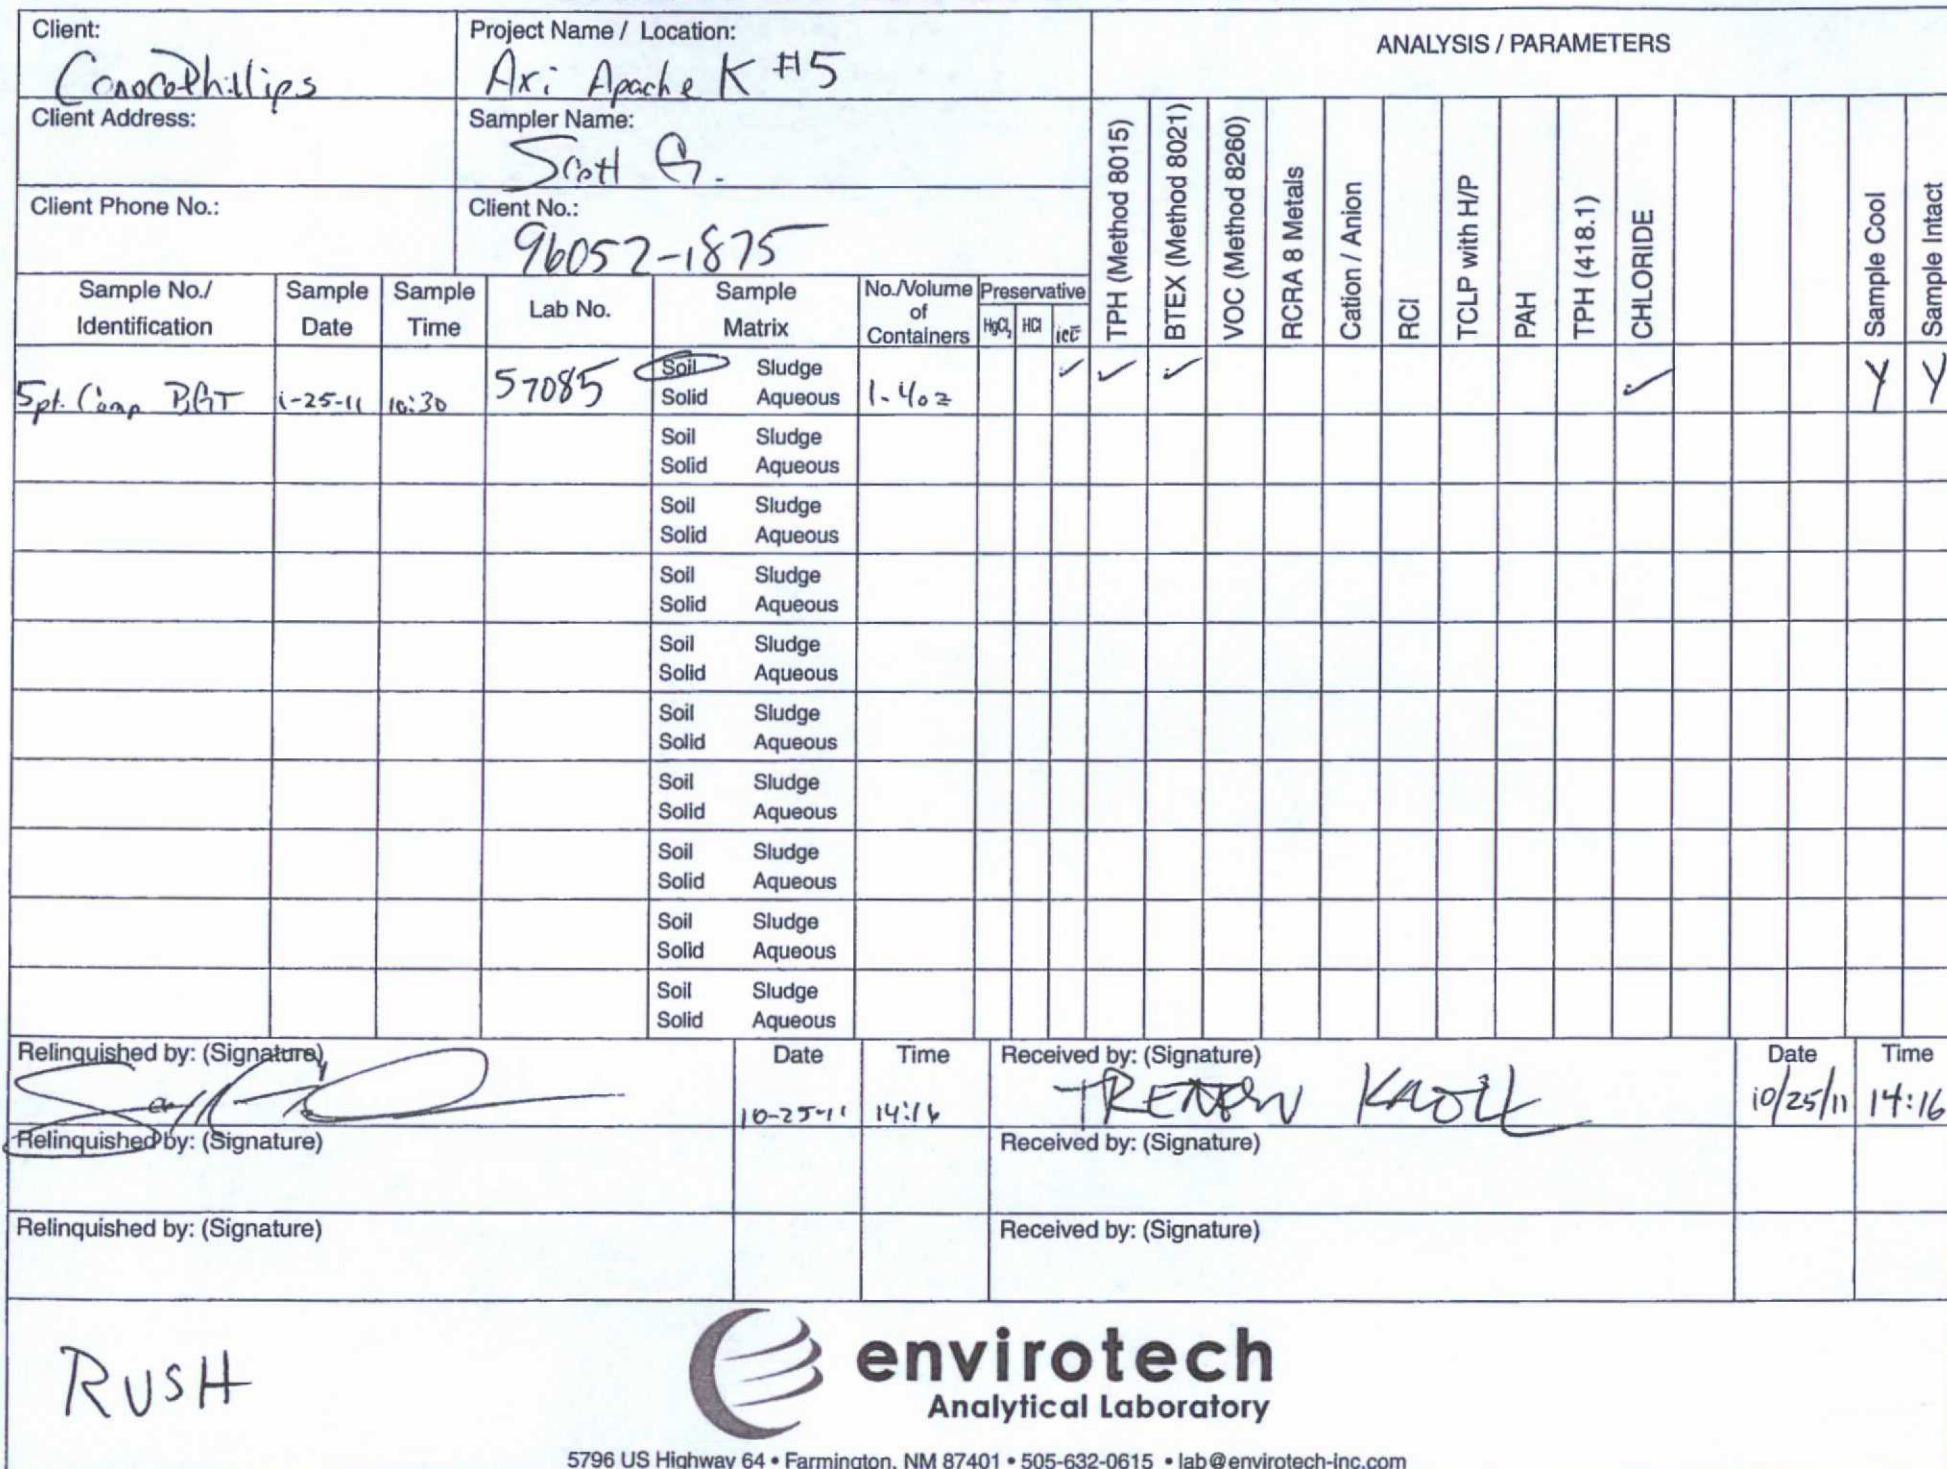 Client:
ConocoPhillips
Project Name / Location:
Axi Apache K #5
ANALYSIS / PARAMETERS
Client Address:
Sampler Name:
Scott G.
Client Phone No.:
Client No.:
96052-1875
Sample No./ Identification
Sample Date
Sample Time
Lab No.
Sample Matrix
No./Volume of Containers
Preservative
HgCl₂ HCl ice
TPH (Method 8015)
BTEX (Method 8021)
VOC (Method 8260)
RCRA 8 Metals
Cation / Anion
RCI
TCLP with H/P
PAH
TPH (418.1)
CHLORIDE
Sample Cool
Sample Intact
5pt. Comp BGT 1-25-11 10:30 57085 Soil Sludge 1-4oz ✓ ✓ ✓ ✓ Y Y
Solid Aqueous
Soil Sludge
Solid Aqueous
Soil Sludge
Solid Aqueous
Soil Sludge
Solid Aqueous
Soil Sludge
Solid Aqueous
Soil Sludge
Solid Aqueous
Soil Sludge
Solid Aqueous
Soil Sludge
Solid Aqueous
Soil Sludge
Solid Aqueous
Soil Sludge
Solid Aqueous
Relinquished by: (Signature) Date Time Received by: (Signature) Date Time
10-25-11 14:16 10/25/11 14:16
Relinquished by: (Signature) Received by: (Signature)
Relinquished by: (Signature) Received by: (Signature)
RUSH
envirotech
Analytical Laboratory
5796 US Highway 64 • Farmington, NM 87401 • 505-632-0615 • lab@envirotech-inc.com